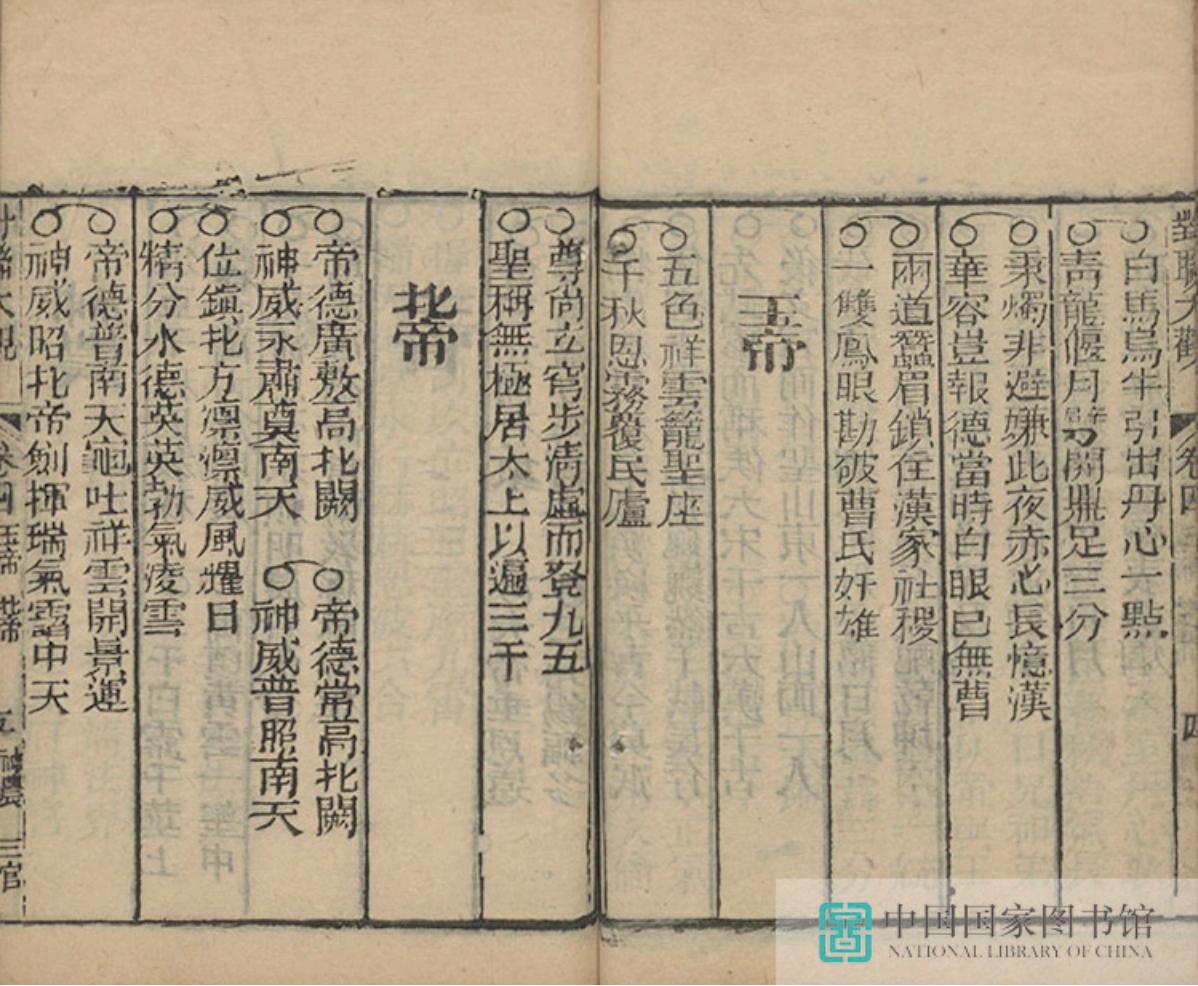 對聯大觀 卷四 四
白馬烏牛引出丹心一點
靑龍偃月 開鼎足三分
秉燭非避嫌此夜赤心長憶漢
華容豈報德當時白眼已無曹
兩道蠶眉鎖住漢家社稷
一雙鳳眼勘破曹氏奸雄
玉帝
五色祥雲籠聖座
千秋恩霧覆民廬
尊尚立穹步淸虛而登九五
聖稱無極居太上以遍三千
北帝
帝德廣敷高北闕
神威永肅奠南天
帝德常高北闕
神威普照南天
位鎭北方凛凛威風耀日
精分水德英英勃氣凌雲
帝德普南天龜吐祥雲開景運
神威昭北帝劍揮瑞氣靄中天
對聯大觀 卷四 玉帝 北帝 五 神農 三官
中国国家图书馆
NATIONAL LIBRARY OF CHINA